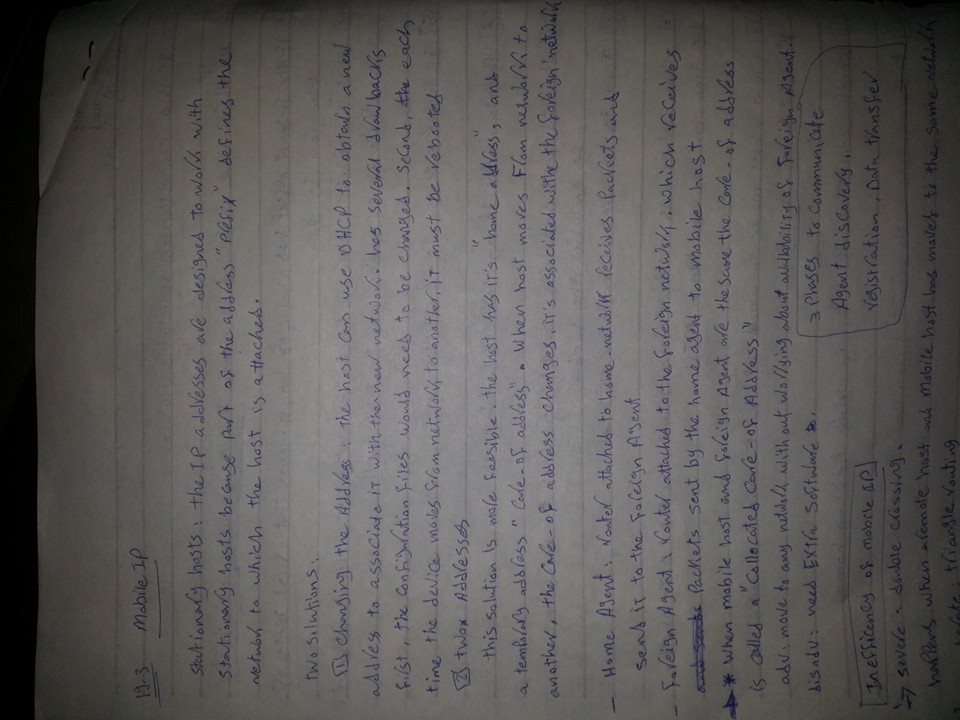 19.3 Mobile IP
Stationary hosts: the IP addresses are designed to work with
stationary hosts because part of the address "Prefix" defines the
network to which the host is attached.
Two solutions:
[1] Changing the Address: the host can use DHCP to obtain a new
address to associate it with the new network. has several drawbacks
first, the configuration files would need to be changed. Second, the each
time the device moves from network to another, it must be rebooted
[2] two Addresses
this solution is more feasible. the host has it's "home address", and
a temporary address "Care-of address". When host moves From network to
another, the Care-of address changes, it's associated withe the foreign network
- Home Agent: router attached to home network receives Packets and
send it to the foreign Agent
- Foreign Agent: router attached to the foreign network, which receives
Packets sent by the home agent to mobile host
* When mobile host and foreign Agent are the same the Care-of address
is called a "Collocated Care-of Address"
adv: move to any network without worrying about availability of foreign Agent.
disadv: need Extra Software
3 Phases to communicate
Agent discovery,
registration, Data transfer
Inefficency of mobile IP
→ severe: double crossing.
happens when a remote host and mobile host has moved to the same network
triangle routing